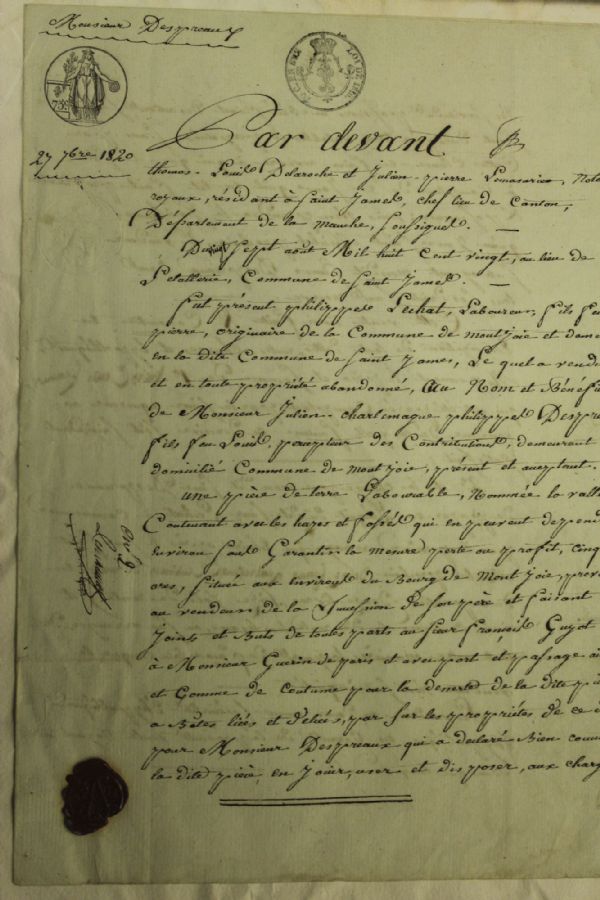 Monsieur Despreaux
27 7bre 1820
Par devant
thomas Louis Delaroche et Julien pierre Lemasurier, Nota
royaux, résidant à Saint James, chef lieu de Canton,
Département de la manche, soussignés.
Du sept août Mil huit Cent vingt, au lieu de
Commune de Saint James.
fut présent philippes Lechat, Laboureur, fils feu
pierre, originaire de la Commune de montjoie et deme
en la dite Commune de Saint James, Le quel a vendu
et en toute propriété abandonné, au Nom et Bénéfi
de Monsieur Julien charlemagne philippes Despre
fils feu Louis, percepteur des Contributions, demeurant
domicilié Commune de montjoie, présent et aceptant.
une pièce de terre Labourable, Nommée la vall
Contenant avec les hayes et fossés qui en peuvent depend
Environ sous Garantir la mesure perte ou profit, cinq
ares, située aux Environs du Bourg de Mont joie, prov
au vendeur de la Succession de son père et faisant
Joints et Buts de toutes parts au sieur françois Guyot
à Monsieur Guerin de paris et avec port et passage
et Comme de Coutume pour la deserte de la dite pi
a Bêtes liées et déliées, par sur les propriétés de ce
pour Monsieur Despreaux qui a declaré Bien conn
la dite pièce, en Jouir, user et disposer, aux charg